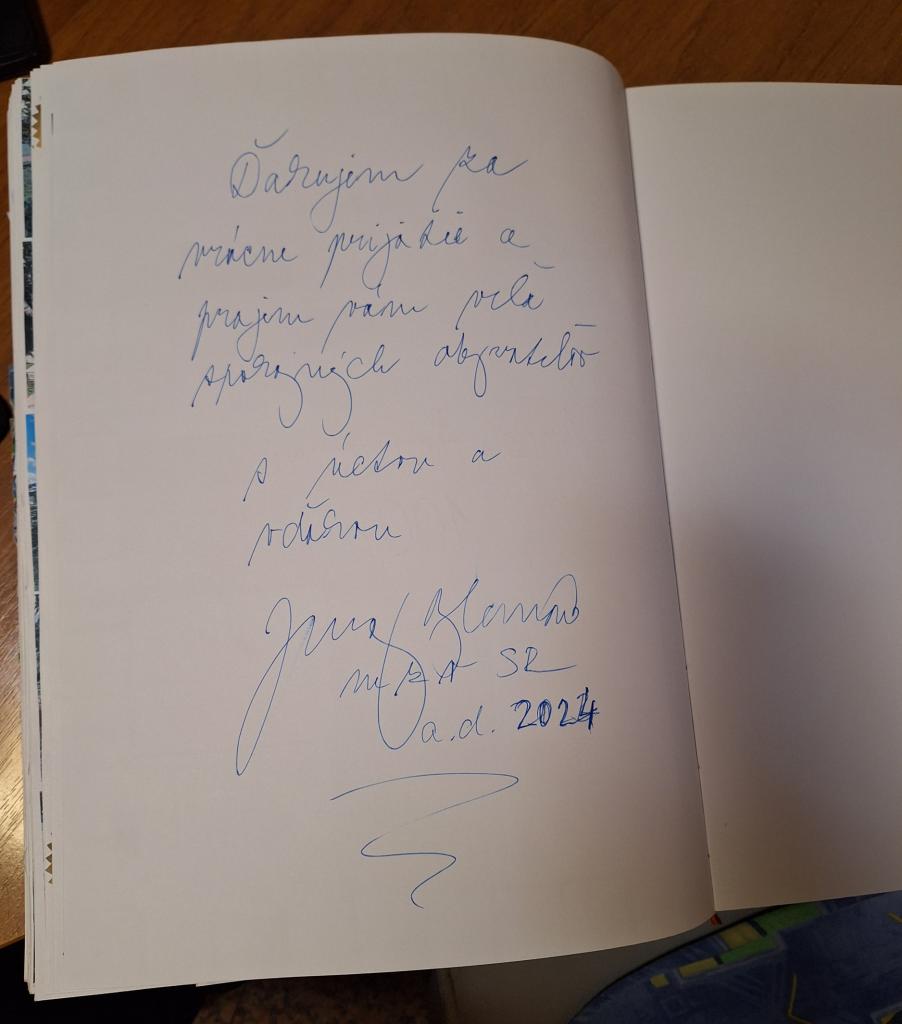 Ďakujem za
vrúcne prijatie a
prajem vám veľa
spokojných obyvateľov
s úctou a
vďakou
Juraj Blanár
MZV SR
a.d. 2024